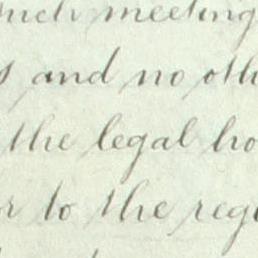 such meeting
and no oth
the legal ho
or to the regu